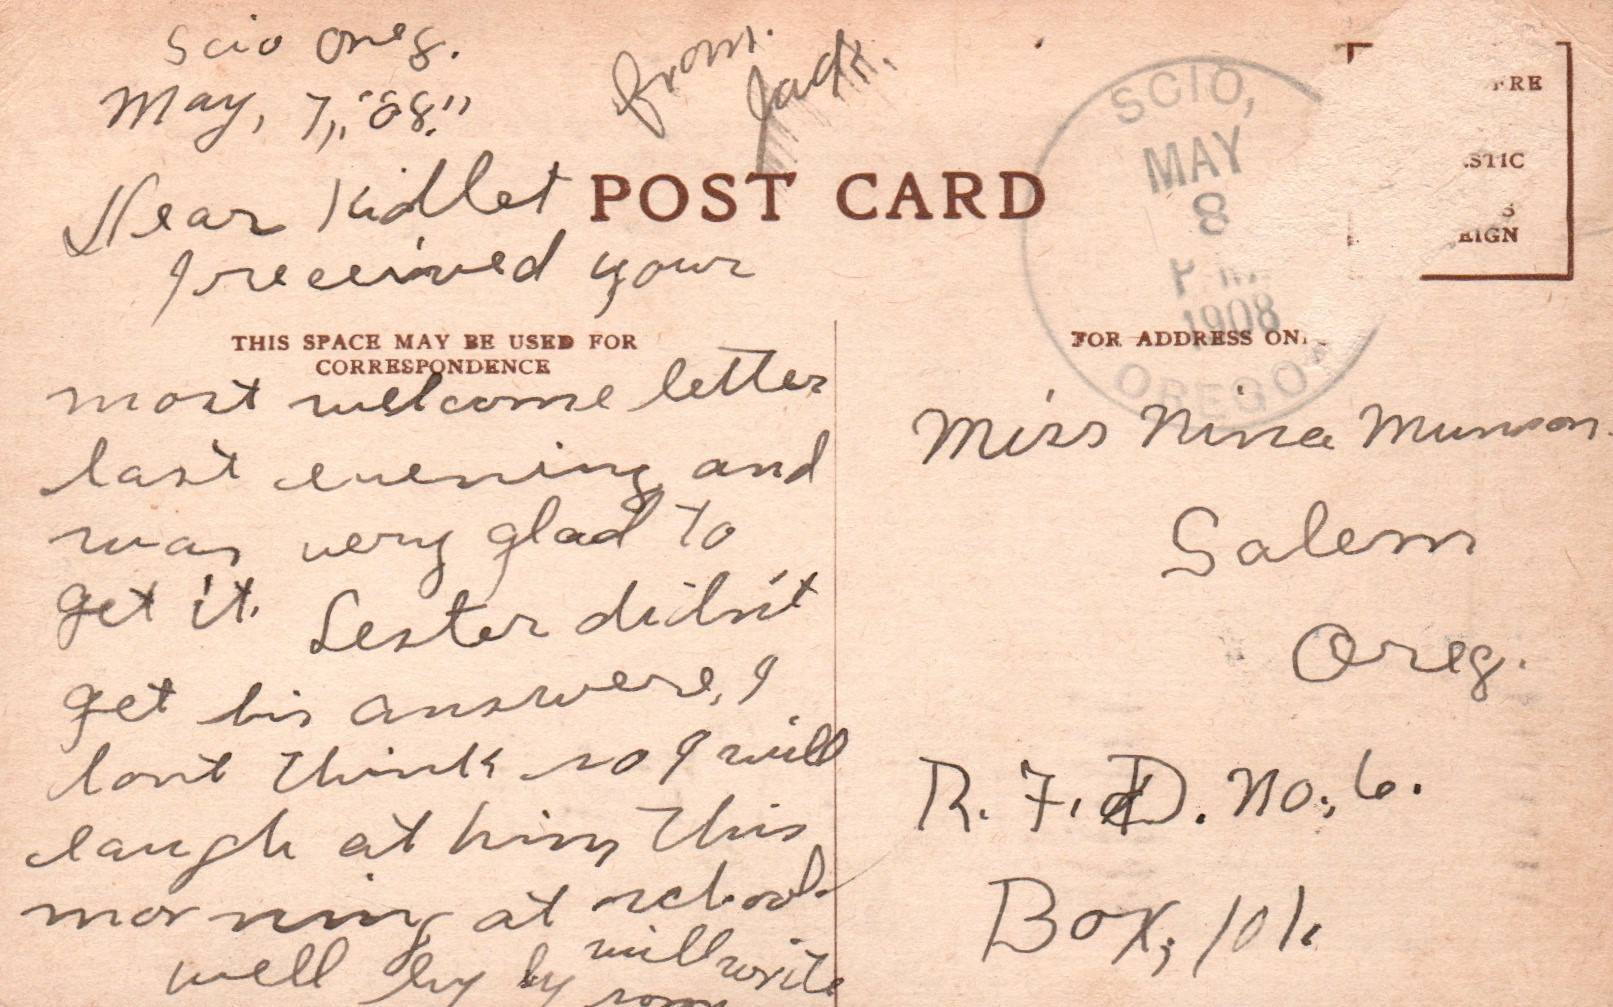 Scio Oreg.
May, 7, "08."
from.
Jack.
Dear Kidlet
POST CARD
I received your
THIS SPACE MAY BE USED FOR
CORRESPONDENCE
most welcome letter
last evening and
was very glad to
get it. Lester didn't
get his answere, I
dont think so I will
laugh at him this
morning at school.
well by by will write
soon
SCIO,
MAY
8
P.M.
1908
OREGON
FOR ADDRESS ON
Miss Nina Munson.
Salem
Oreg.
R. F. D. No. 6.
Box, 101.